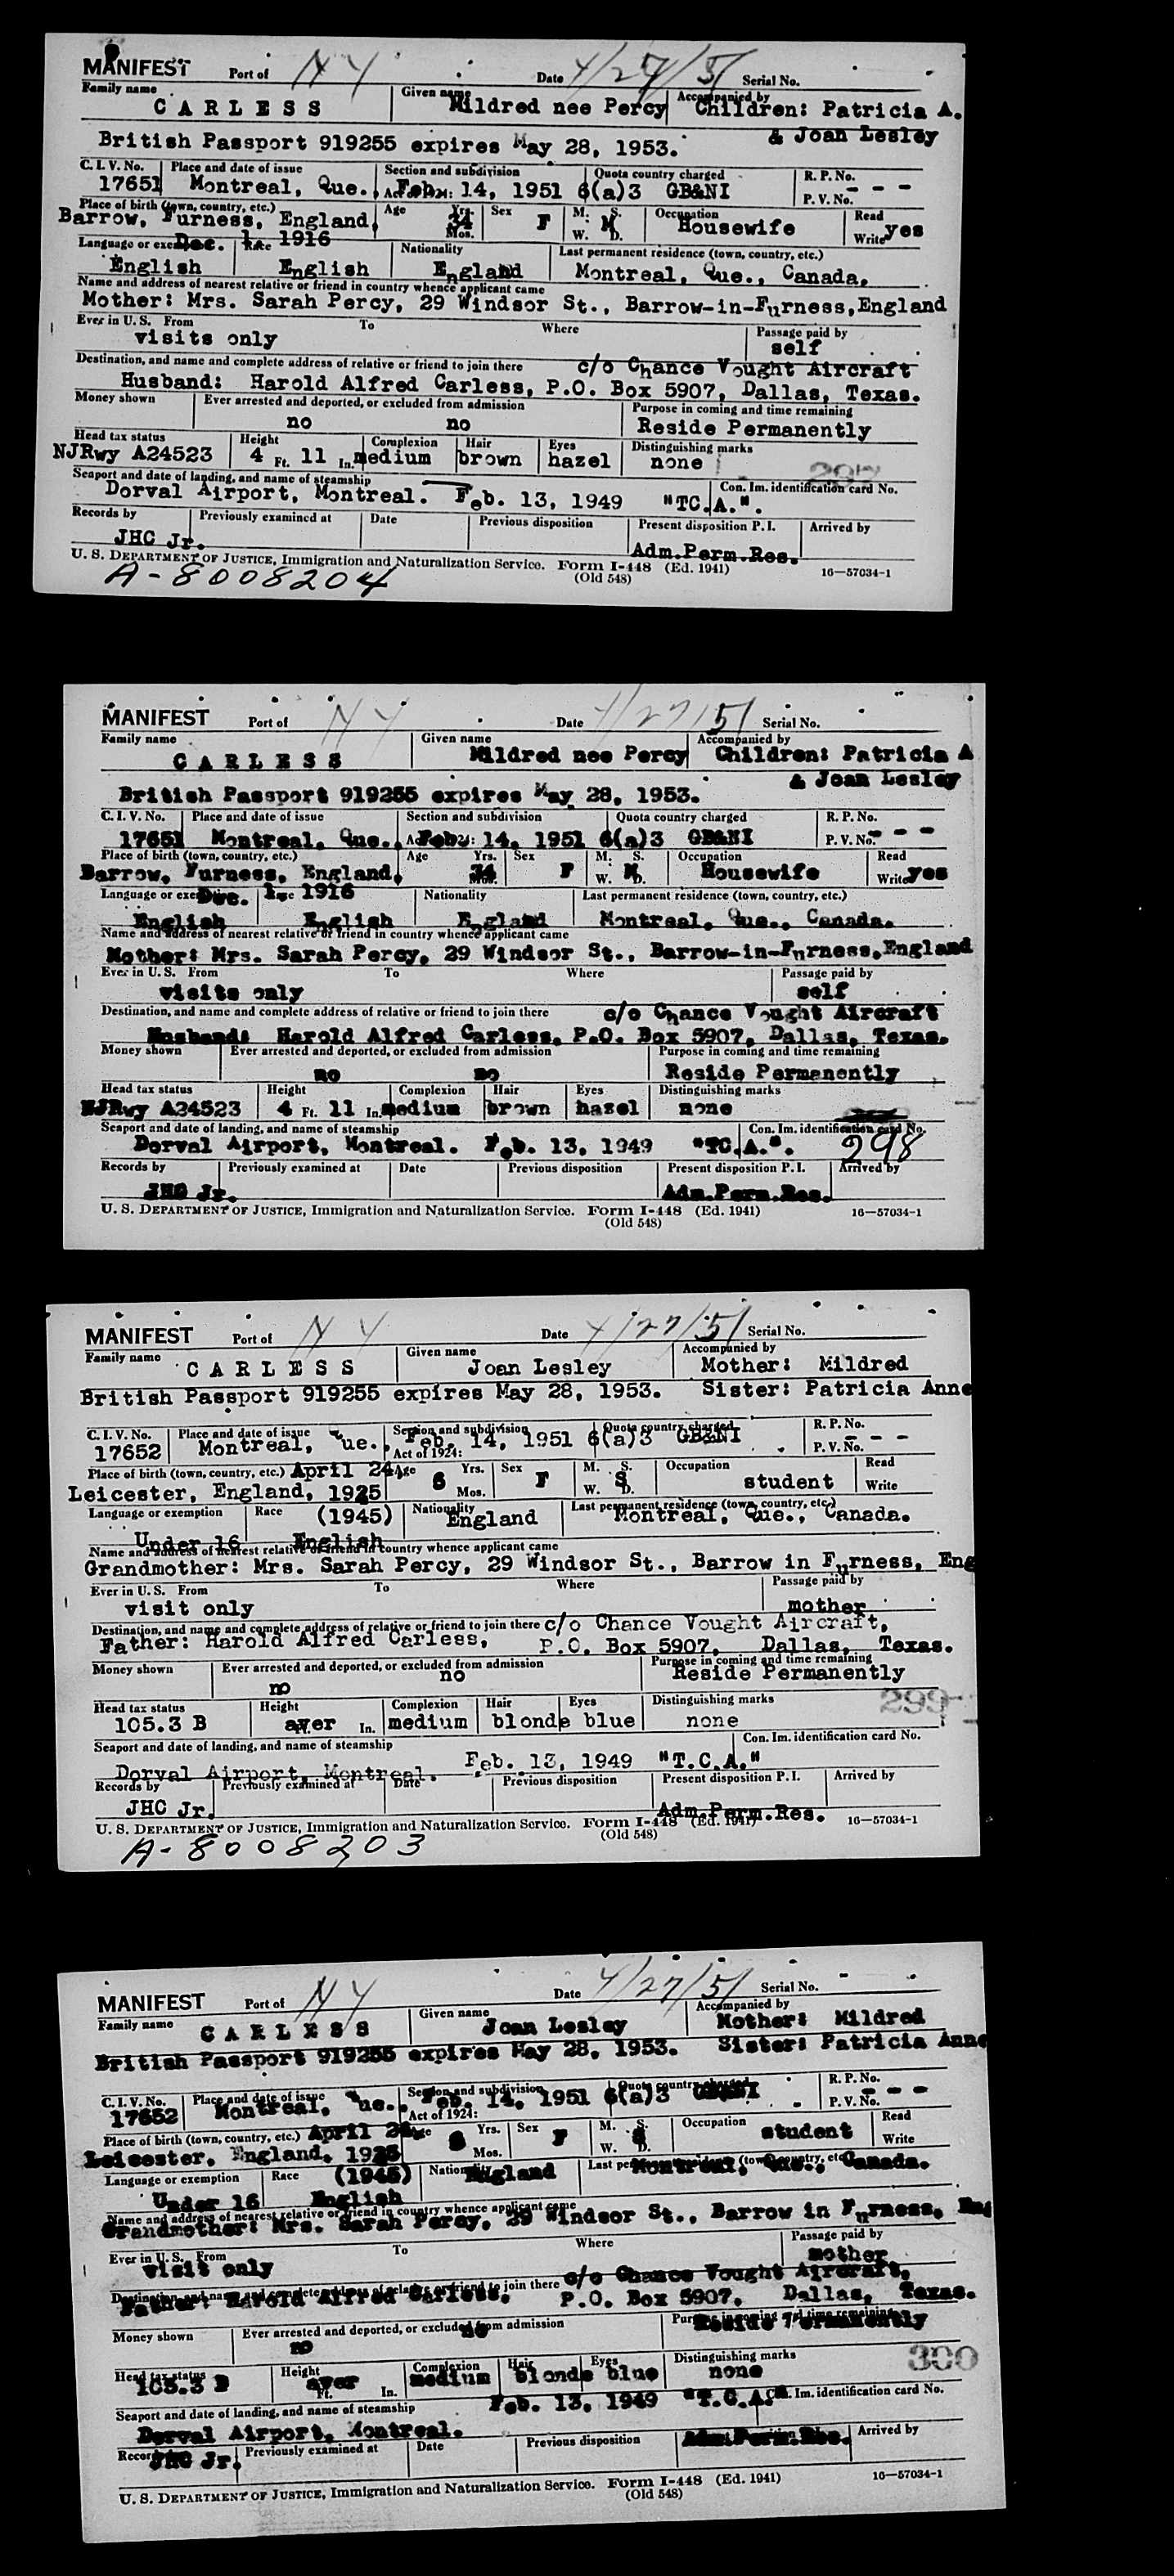 MANIFEST Port of N Y Date 4/27/51 Serial No.
Family name Given name Accompanied by
CARLESS Mildred nee Percy Children: Patricia A.
& Joan Lesley
British Passport 919255 expires May 28, 1953.
C. I. V. No. Place and date of issue Section and subdivision Quota country charged R. P. No. - - -
17651 Montreal, Que., Feb. 14, 1951 6(a)3 GB&NI P. V. No.
Place of birth (town, country, etc.) Age Yrs. Sex M. S. Occupation Read
Barrow, Furness, England, 34 Mos. F W. M D. Housewife Write yes
Dec. 1, 1916
Language or exemption Race Nationality Last permanent residence (town, country, etc.)
English English England Montreal, Que., Canada.
Name and address of nearest relative or friend in country whence applicant came
Mother: Mrs. Sarah Percy, 29 Windsor St., Barrow-in-Furness,England
Ever in U. S. From To Where Passage paid by
visits only self
Destination, and name and complete address of relative or friend to join there c/o Chance Vought Aircraft
Husband: Harold Alfred Carless, P.O. Box 5907, Dallas, Texas.
Money shown Ever arrested and deported, or excluded from admission Purpose in coming and time remaining
no no Reside Permanently
Head tax status Height Complexion Hair Eyes Distinguishing marks
NJRwy A24523 4 Ft. 11 In. medium brown hazel none
Seaport and date of landing, and name of steamship Con. Im. identification card No.
Dorval Airport, Montreal. Feb. 13, 1949 "TC.A.".
Records by Previously examined at Date Previous disposition Present disposition P. I. Arrived by
JHC Jr. Adm.Perm.Res.
U. S. DEPARTMENT OF JUSTICE, Immigration and Naturalization Service. Form I-448 (Ed. 1941) 16—57034-1
(Old 548)
A-8008204
MANIFEST Port of N Y Date 4/27/51 Serial No.
Family name Given name Accompanied by
CARLESS Mildred nee Percy Children: Patricia A
& Joan Lesley
British Passport 919255 expires May 28, 1953.
C. I. V. No. Place and date of issue Section and subdivision Quota country charged R. P. No.
17651 Montreal, Que., Feb. 14, 1951 6(a)3 GB&NI P. V. No. - - -
Place of birth (town, country, etc.) Age Yrs. Sex M. S. Occupation Read
Barrow, Furness, England, 34 Mos. F W. M D. Housewife Write yes
Language or exemption Dec. 1, 1916 Nationality Last permanent residence (town, country, etc.)
English English England Montreal, Que., Canada.
Name and address of nearest relative or friend in country whence applicant came
Mother: Mrs. Sarah Percy, 29 Windsor St., Barrow-in-Furness,England
Ever in U. S. From To Where Passage paid by
visits only self
Destination, and name and complete address of relative or friend to join there c/o Chance Vought Aircraft
Husband: Harold Alfred Carless, P.O. Box 5907, Dallas, Texas.
Money shown Ever arrested and deported, or excluded from admission Purpose in coming and time remaining
no no Reside Permanently
Head tax status Height Complexion Hair Eyes Distinguishing marks
NJRwy A24523 4 Ft. 11 In. medium brown hazel none
Seaport and date of landing, and name of steamship Con. Im. identification card No.
Dorval Airport, Montreal. Feb. 13, 1949 "TC.A.". 298
Records by Previously examined at Date Previous disposition Present disposition P. I. Arrived by
JHC Jr. Adm.Perm.Res.
U. S. DEPARTMENT OF JUSTICE, Immigration and Naturalization Service. Form I-448 (Ed. 1941) 16—57034-1
(Old 548)
MANIFEST Port of N Y Date 4/27/51 Serial No.
Family name Given name Accompanied by
CARLESS Joan Lesley Mother: Mildred
British Passport 919255 expires May 28, 1953. Sister: Patricia Anne
C. I. V. No. Place and date of issue Section and subdivision Quota country charged R. P. No.
17652 Montreal, Que., Feb. 14, 1951 6(a)3 GB&NI - - -
Act of 1924: P. V. No.
Place of birth (town, country, etc.) April 24, Age 6 Yrs. Sex F M. S. Occupation student Read
Leicester, England, 1925 Mos. W. S D. Write
Language or exemption Race (1945) Nationality Last permanent residence (town, country, etc.)
Under 16 English England Montreal, Que., Canada.
Name and address of nearest relative or friend in country whence applicant came
Grandmother: Mrs. Sarah Percy, 29 Windsor St., Barrow in Furness, Eng
Ever in U. S. From To Where Passage paid by
visit only mother
Destination, and name and complete address of relative or friend to join there c/o Chance Vought Aircraft,
Father: Harold Alfred Carless, P.O. Box 5907, Dallas, Texas.
Money shown Ever arrested and deported, or excluded from admission Purpose in coming and time remaining
no no Reside Permanently
299
Head tax status Height Complexion Hair Eyes Distinguishing marks
105.3 B aver In. medium blonde blue none
Seaport and date of landing, and name of steamship Con. Im. identification card No.
Dorval Airport, Montreal. Feb. 13, 1949 "T.C.A."
Records by Previously examined at Date Previous disposition Present disposition P. I. Arrived by
JHC Jr. Adm.Perm.Res.
U. S. DEPARTMENT OF JUSTICE, Immigration and Naturalization Service. Form I-448 (Ed. 1941) 16—57034-1
(Old 548)
A-8008203
MANIFEST Port of N Y Date 4/27/51 Serial No.
Family name Given name Accompanied by
CARLESS Joan Lesley Mother: Mildred
British Passport 919255 expires May 28, 1953. Sister: Patricia Anne
C. I. V. No. Place and date of issue Section and subdivision Quota country charged R. P. No.
17652 Montreal, Que., Feb. 14, 1951 6(a)3 GB&NI - - -
Act of 1924: P. V. No.
Place of birth (town, country, etc.) April 24, Age 6 Yrs. Sex F M. S. Occupation student Read
Leicester, England, 1925 Mos. W. S D. Write
Language or exemption Race (1945) Nationality England Last permanent residence (town, country, etc.) Montreal, Que., Canada.
Under 16 English
Name and address of nearest relative or friend in country whence applicant came
Grandmother: Mrs. Sarah Percy, 29 Windsor St., Barrow in Furness, Eng
Ever in U. S. From To Where Passage paid by
visit only mother
Destination, and name and complete address of relative or friend to join there c/o Chance Vought Aircraft,
Father: Harold Alfred Carless, P.O. Box 5907, Dallas, Texas.
Money shown Ever arrested and deported, or excluded from admission Purpose in coming and time remaining
no no Reside Permanently
300
Head tax status Height Complexion Hair Eyes Distinguishing marks
105.3 B aver Ft. In. medium blonde blue none
Seaport and date of landing, and name of steamship Feb. 13, 1949 "T.C.A." Con. Im. identification card No.
Dorval Airport, Montreal.
Records by Previously examined at Date Previous disposition Adm.Perm.Res. Arrived by
JHC Jr.
U. S. DEPARTMENT OF JUSTICE, Immigration and Naturalization Service. Form I-448 (Ed. 1941) 16—57034-1
(Old 548)